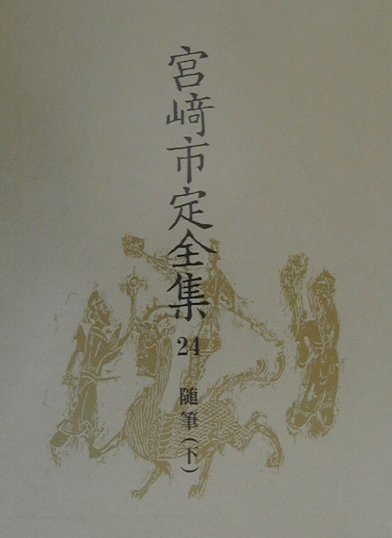 宮﨑市定全集
24
随筆(下)